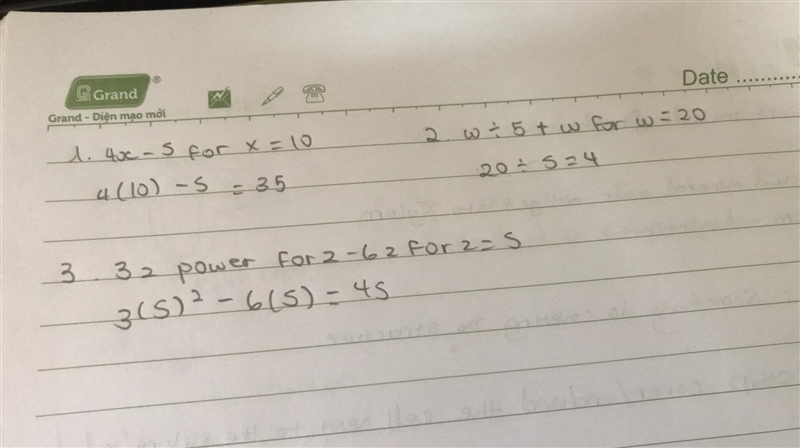 Grand ®
Grand - Diện mạo mới
Date ...........
1. 4x - 5 for x = 10
4(10) - 5 = 35
2. w ÷ 5 + w for w = 20
20 ÷ 5 = 4
3. 3z power for 2 - 6z for z = 5
3(5)² - 6(5) = 45